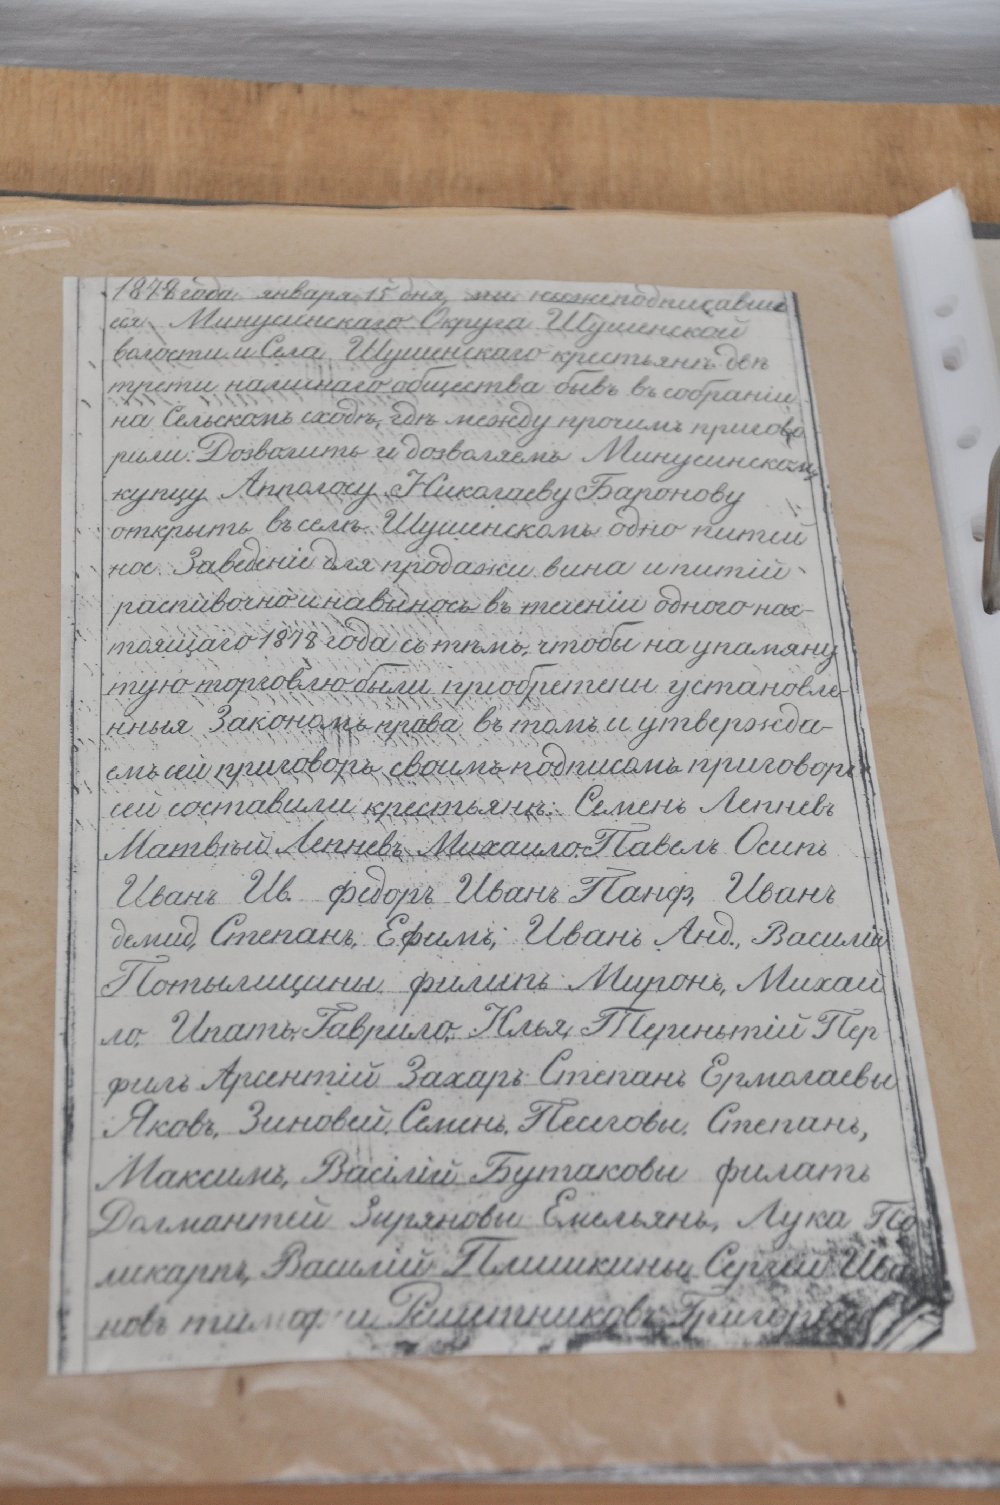 1878 года января 15 дня, мы нижеподписавши
еся Минусинскаго Округа Шушенской
волости и Села Шушенскаго крестьянъ двѣ
трети наличнаго общества бывъ въ собраніи
на Сельскомъ сходѣ, гдѣ между прочимъ пригово
рили: Дозволить и дозволяемъ Минусинскому
купцу Апполосу Николаеву Баронову
открыть въ селѣ Шушенскомъ одно питей
ное Заведеніе для продажи вина и питій
распивочно и навыносъ въ теченіи одного нас-
тоящаго 1878 года съ тѣмъ, чтобы на упомяну
тую торговлю были приобретены установле-
нныя Закономъ права въ томъ и утвержда-
емъ сей приговоръ своимъ подписомъ приговоръ
сей составили крестьянѣ: Семенъ Лепневъ
Матвѣй Лепневъ Михаило Павелъ Осипъ
Иванъ Ив. федоръ Иванъ Панф, Иванъ
демид, Степанъ, Ефимъ, Иванъ Анд., Василій
Потылицыны филипъ Миронъ, Михай
ло, Ипатъ, Гаврило, Илья, Тереньтій Пер
филъ Арсентій Захаръ Степанъ Ермолаевы
Яковъ, Зиновей, Семенъ, Песеговы. Степанъ,
Максимъ, Василій Бутаковы филатъ
Долмантей Зыряновы Емельянъ, Лука По
ликарпъ, Василій Плишкины, Сергей Ива
новъ тимоф и Решетниковъ Григорій